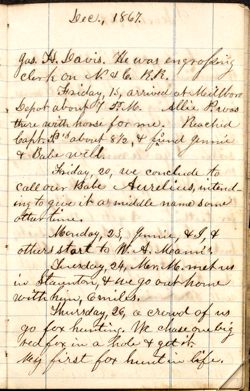 Dec., 1867.
Jas. H. Davis. He was engrossing
clerk on N & C. R.R.
Friday, 13, arrived at Millboro
Depot about 7 P.M. Allie P. was
there with horse for me. Reached
Capt. B's about 8½, & found Jennie
& Babe well.
Friday, 20, we conclude to
call our Babe Aurelius, intend
ing to give it a middle name some
other time.
Monday, 23, Jennie, & I, &
others start to W. A.
Tuesday, 24, Mr. M. met us
in Staunton, & we go out home
with him, 6 miles.
Thursday, 26, a crowd of us
go fox hunting. We chase one big
red fox in a hole & get it.
My first fox hunt in life.